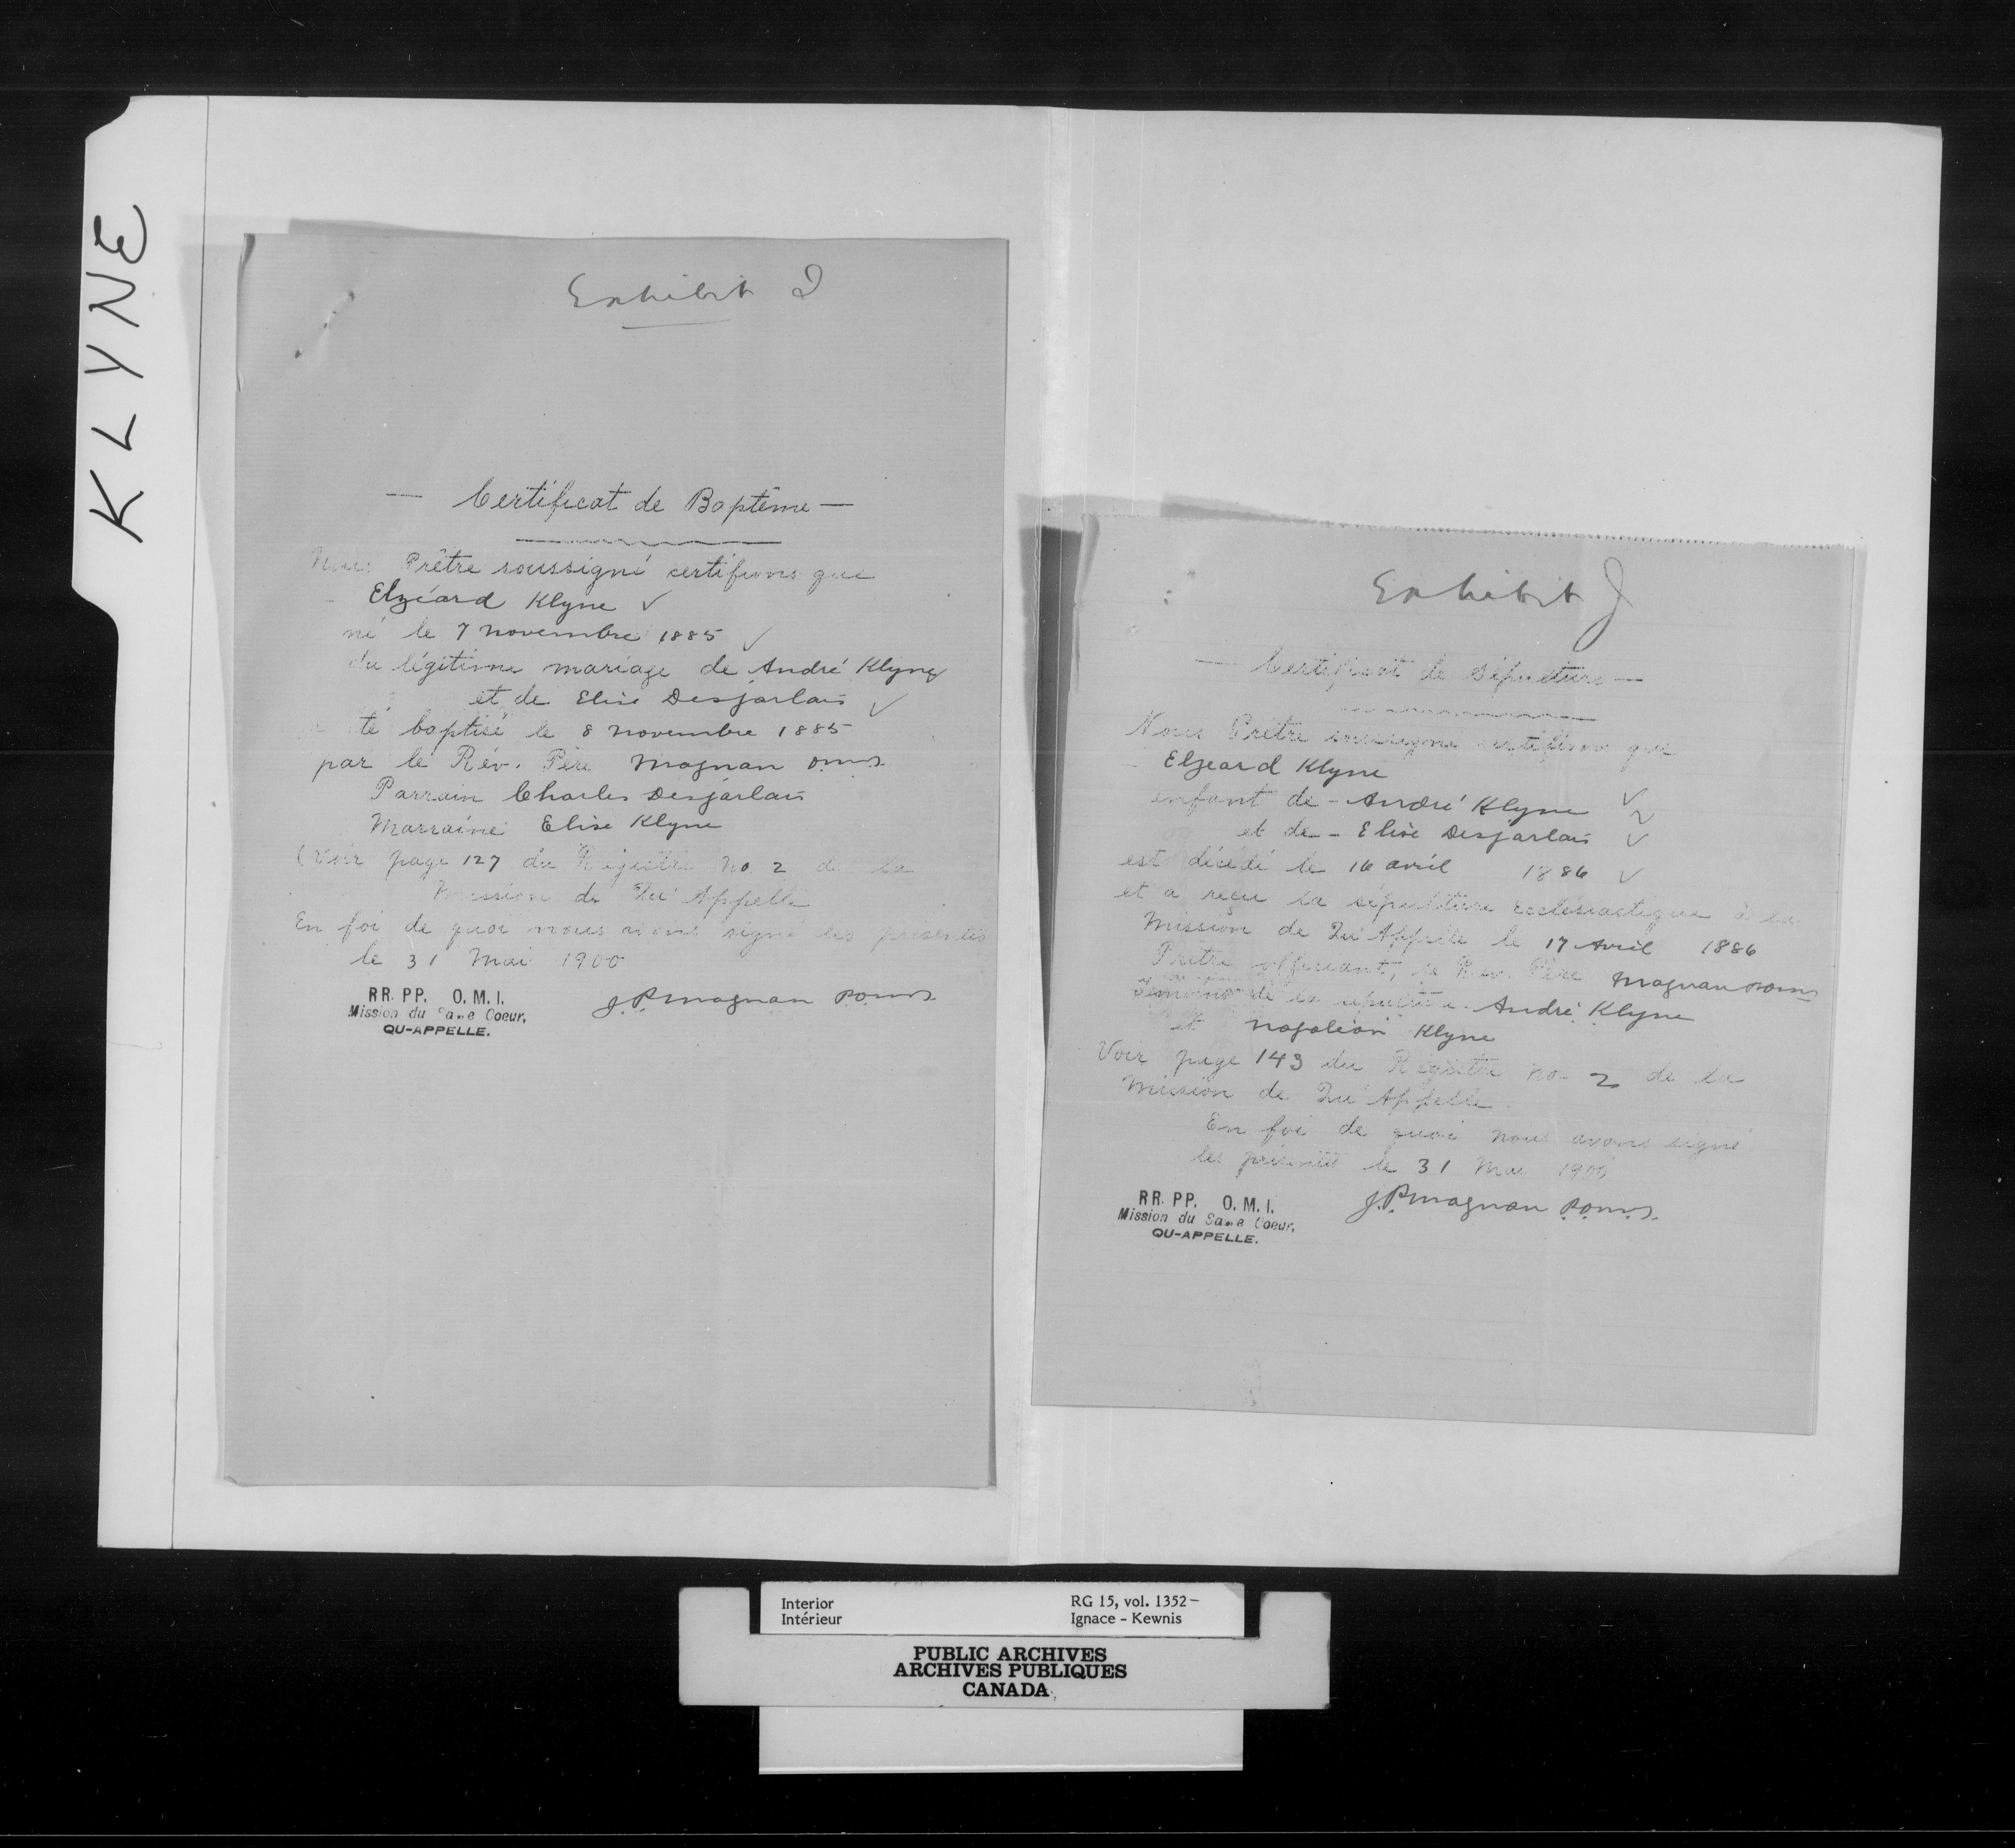 KLYNE
Exhibit I
— Certificat de Baptême —
Nous Prêtre soussigné certifions que
Elzéard Klyne ✓
né le 7 novembre 1885 ✓
du légitime mariage de André Klyne
et de Elise Desjarlais ✓
été baptisé le 8 novembre 1885
par le Rév. Père Magnan o.m.i.
Parrain Charles Desjarlais
Marraine Elise Klyne
(Voir page 127 du Régistre No. 2 de la
Mission de Qu'Appelle
En foi de quoi nous avons signé les présentes
le 31 Mai 1900
RR. PP. O. M. I.
Mission du Sacré Coeur,
QU-APPELLE.
J.P. Magnan P.o.m.i.
Exhibit J
— Certificat de Sépulture —
Nous Prêtre soussigné certifions que
Elzeard Klyne
enfant de - André Klyne ✓
et de - Elise Desjarlais ✓
est décédé le 16 avril 1886 ✓
et a reçu la sépulture Ecclésiastique à la
Mission de Qu'Appelle le 17 Avril 1886
Prêtre officiant, le Rev. Père Magnan P.o.m.i.
Témoins de la sépulture - André Klyne
et Napoléon Klyne
Voir page 143 du Régistre No - 2 de la
Mission de Qu'Appelle.
En foi de quoi nous avons signé
les présentes le 31 Mai 1900
RR. PP. O. M. I.
Mission du Sacré Coeur,
QU-APPELLE.
J.P. Magnan P.o.m.i.
Interior RG 15, vol. 1352 –
Intérieur Ignace - Kewnis
PUBLIC ARCHIVES
ARCHIVES PUBLIQUES
CANADA